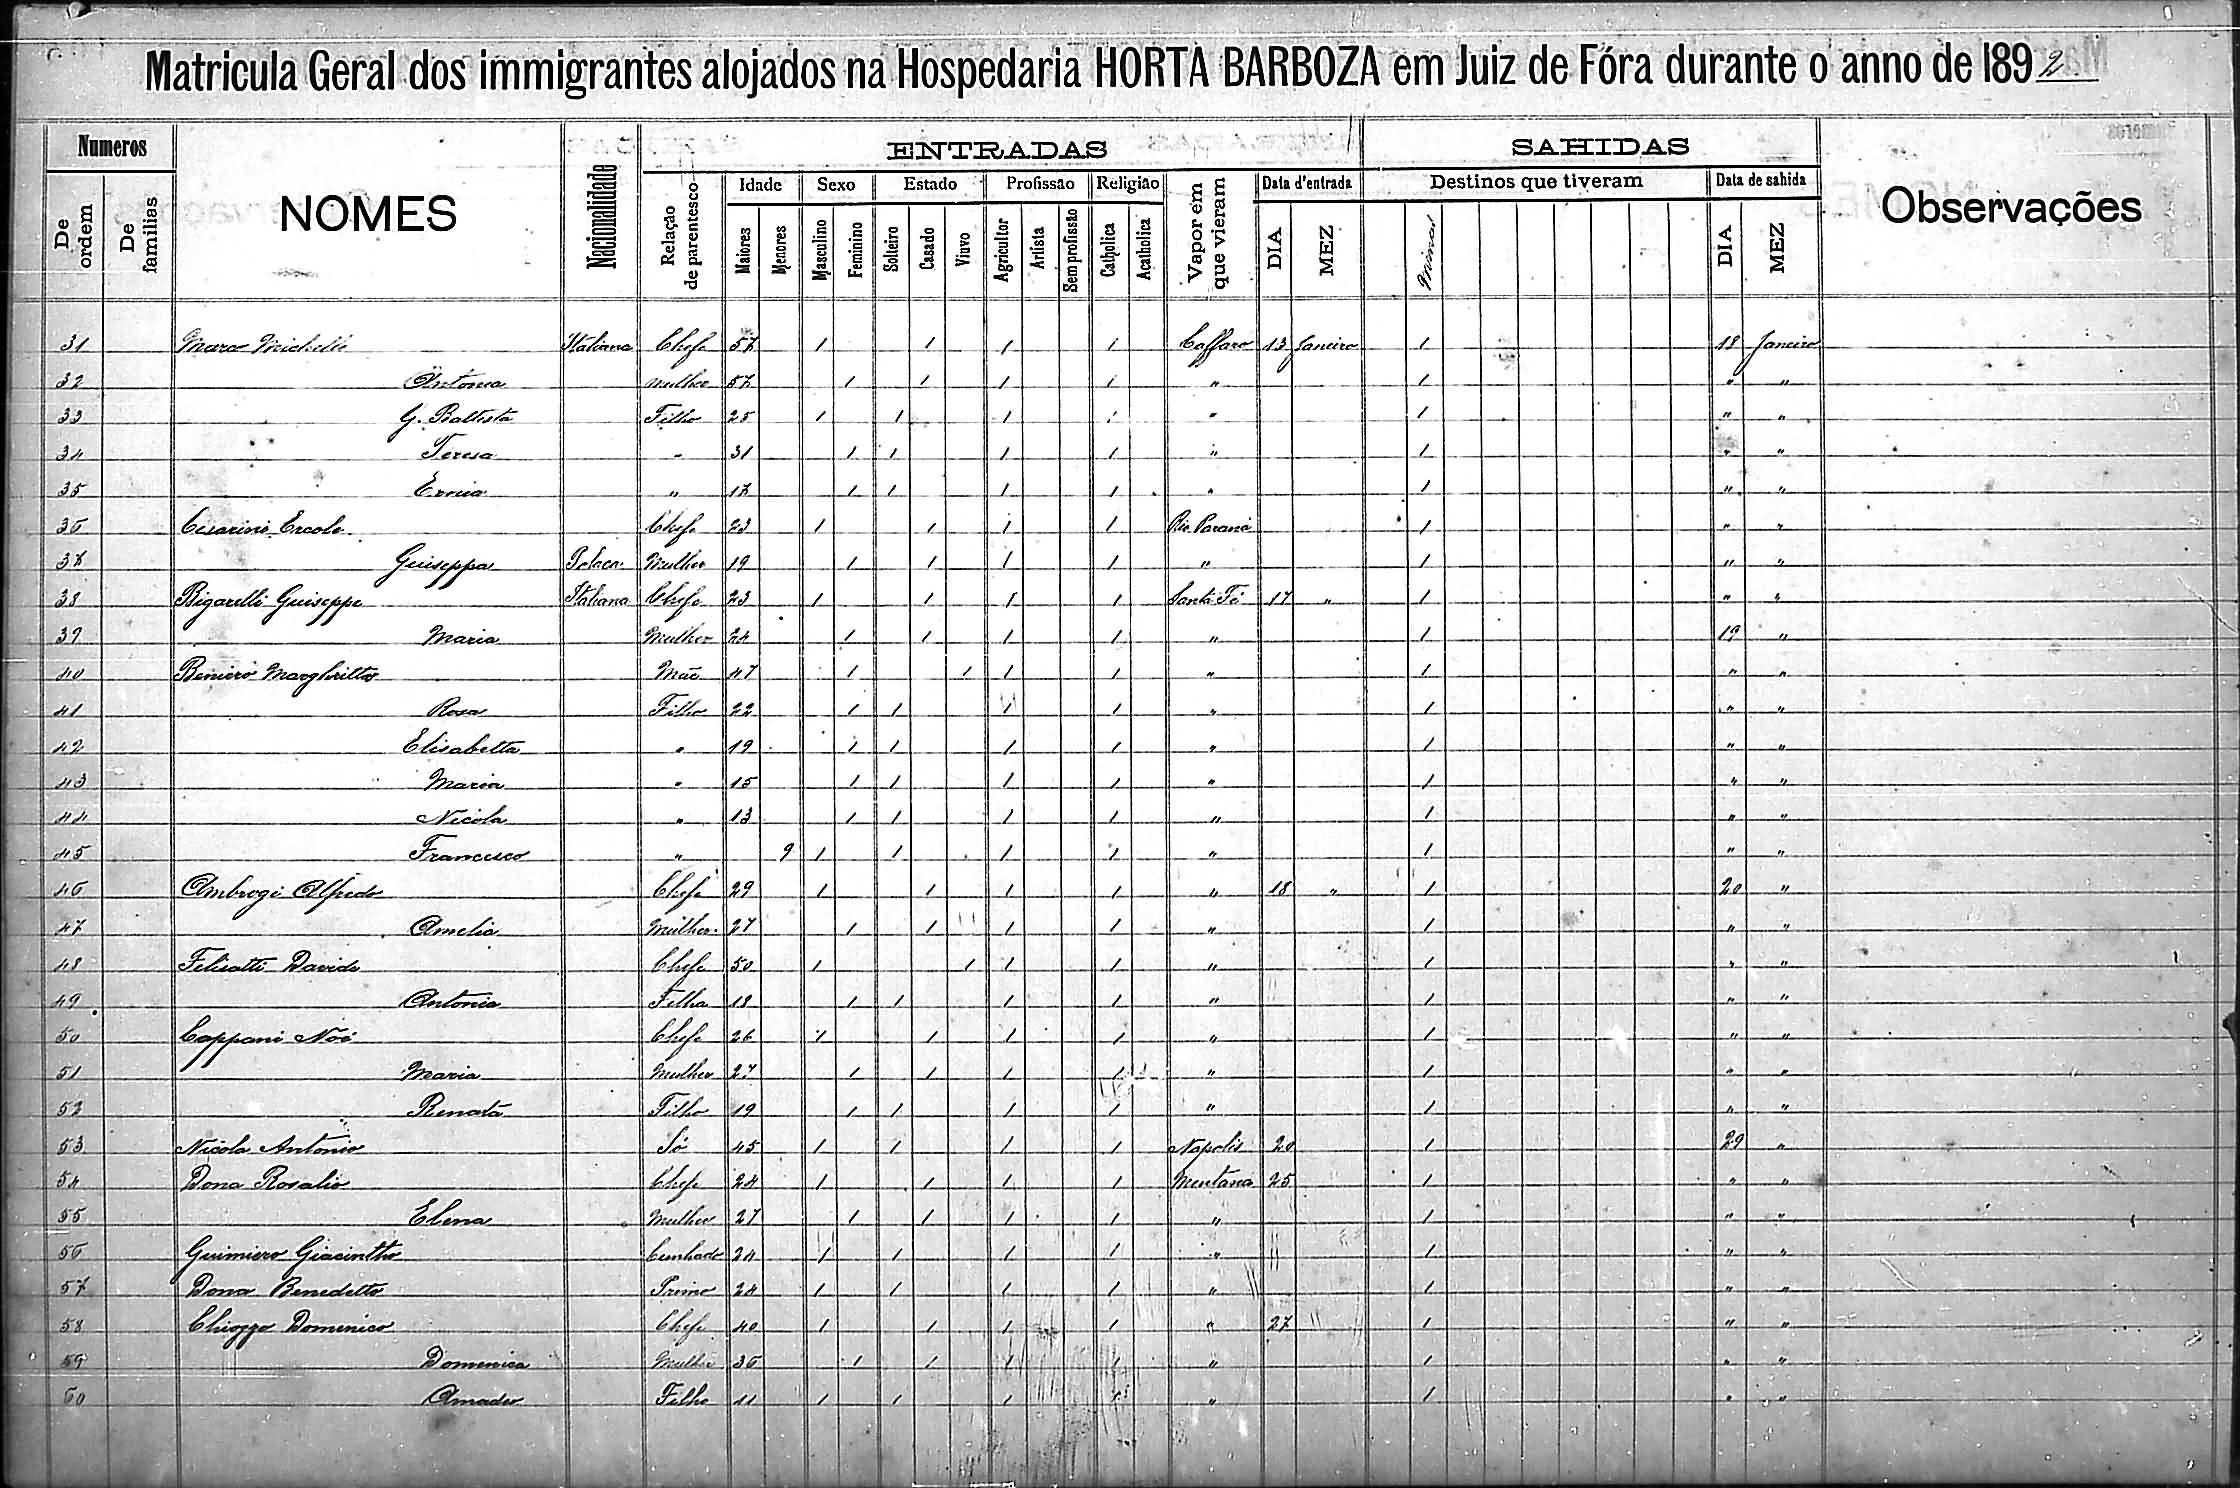 Matricula Geral dos immigrantes alojados na Hospedaria HORTA BARBOZA em Juiz de Fóra durante o anno de 1892
Numeros NOMES Nacionalidade ENTRADAS SAHIDAS Observações
De ordem De familias Relação de parentesco Idade Sexo Estado Profissão Religião Vapor em que vieram Data d'entrada Destinos que tiveram Data de sahida
Maiores Menores Masculino Feminino Solteiro Casado Viuvo Agricultor Artista Sem profissão Catholica Acatholica DIA MEZ Minas DIA MEZ
31 Marco Michelli Italiana Chefe 57 1 1 1 1 Caffaro 13 Janeiro 1 18 Janeiro
32 Antonia Mulher 57 1 1 1 1 " 1 " "
33 G. Battista Filho 25 1 1 1 1 " 1 " "
34 Teresa " 31 1 1 1 1 " 1 " "
35 " 17 1 1 1 1 " 1 " "
36 Cesarini Ercole Chefe 23 1 1 1 1 Rio Paraná 1 " "
37 Guiseppa Polaca Mulher 19 1 1 1 1 " 1 " "
38 Bigarelli Guiseppe Italiana Chefe 23 1 1 1 1 Santa Fé 17 " 1 " "
39 Maria Mulher 24 1 1 1 1 " 1 19 "
40 Beniero Margheritta Mãe 47 1 1 1 1 " 1 " "
41 Rosa Filho 22 1 1 1 1 " 1 " "
42 Elisabetta " 19 1 1 1 1 " 1 " "
43 Maria " 15 1 1 1 1 " 1 " "
44 Nicola " 13 1 1 1 1 " 1 " "
45 Francesco " 9 1 1 1 1 " 1 " "
46 Ambrogi Alfredo Chefe 29 1 1 1 1 " 18 " 1 20 "
47 Amelia Mulher 27 1 1 1 1 " 1 " "
48 Felisatti Davide Chefe 50 1 1 1 1 " 1 " "
49 Antonia Filha 18 1 1 1 1 " 1 " "
50 Cappani Noé Chefe 26 1 1 1 1 " 1 " "
51 Maria Mulher 27 1 1 1 1 " 1 " "
52 Renata Filho 19 1 1 1 1 " 1 " "
53 Nicola Antonio Só 45 1 1 1 1 Napolis 20 1 29 "
54 Dona Rosalio Chefe 24 1 1 1 1 Mentana 25 1 " "
55 Elena Mulher 27 1 1 1 1 " 1 " "
56 Guimiero Giacintho Cunhado 24 1 1 1 1 " 1 " "
57 Dona Benedetto Primo 24 1 1 1 1 " 1 " "
58 Chiozzo Domenico Chefe 40 1 1 1 1 " 27 1 " "
59 Domenica Mulher 36 1 1 1 1 " 1 " "
60 Amadeo Filho 11 1 1 1 1 " 1 " "